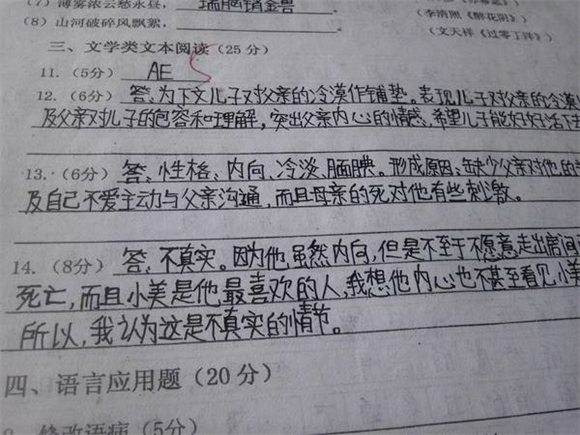 (7) 薄雾浓云愁永昼, 瑞脑销金兽
(李清照《醉花阴》)
(8) 山河破碎风飘絮,
(文天祥《过零丁洋》)
三、文学类文本阅读(25分)
11. (5分) AE 5
12. (6分) 答:为下文儿子对父亲的冷漠作铺垫。表现儿子对父亲的冷漠
及父亲对儿子的包容和理解,突出父亲内心的情感,希望儿子能好好活下去
13. (6分) 答:性格、内向、冷淡、腼腆。形成原因:缺少父亲对他的
及自己不爱主动与父亲沟通,而且母亲的死对他有些刺激。
14. (8分) 答:不真实。因为他虽然内向,但是不至于不愿意走出房间
死亡,而且小美是他最喜欢的人,我想他内心也不甚至看见小美
所以,我认为这是不真实的情节。
四、语言应用题(20分)
修改语病(5分)